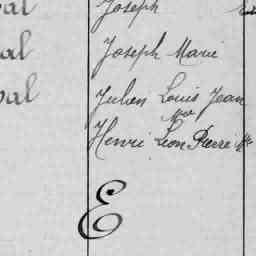 Joseph
al Joseph Marie
val Julien Louis Jean
Henri Léon Pierre Mie
E